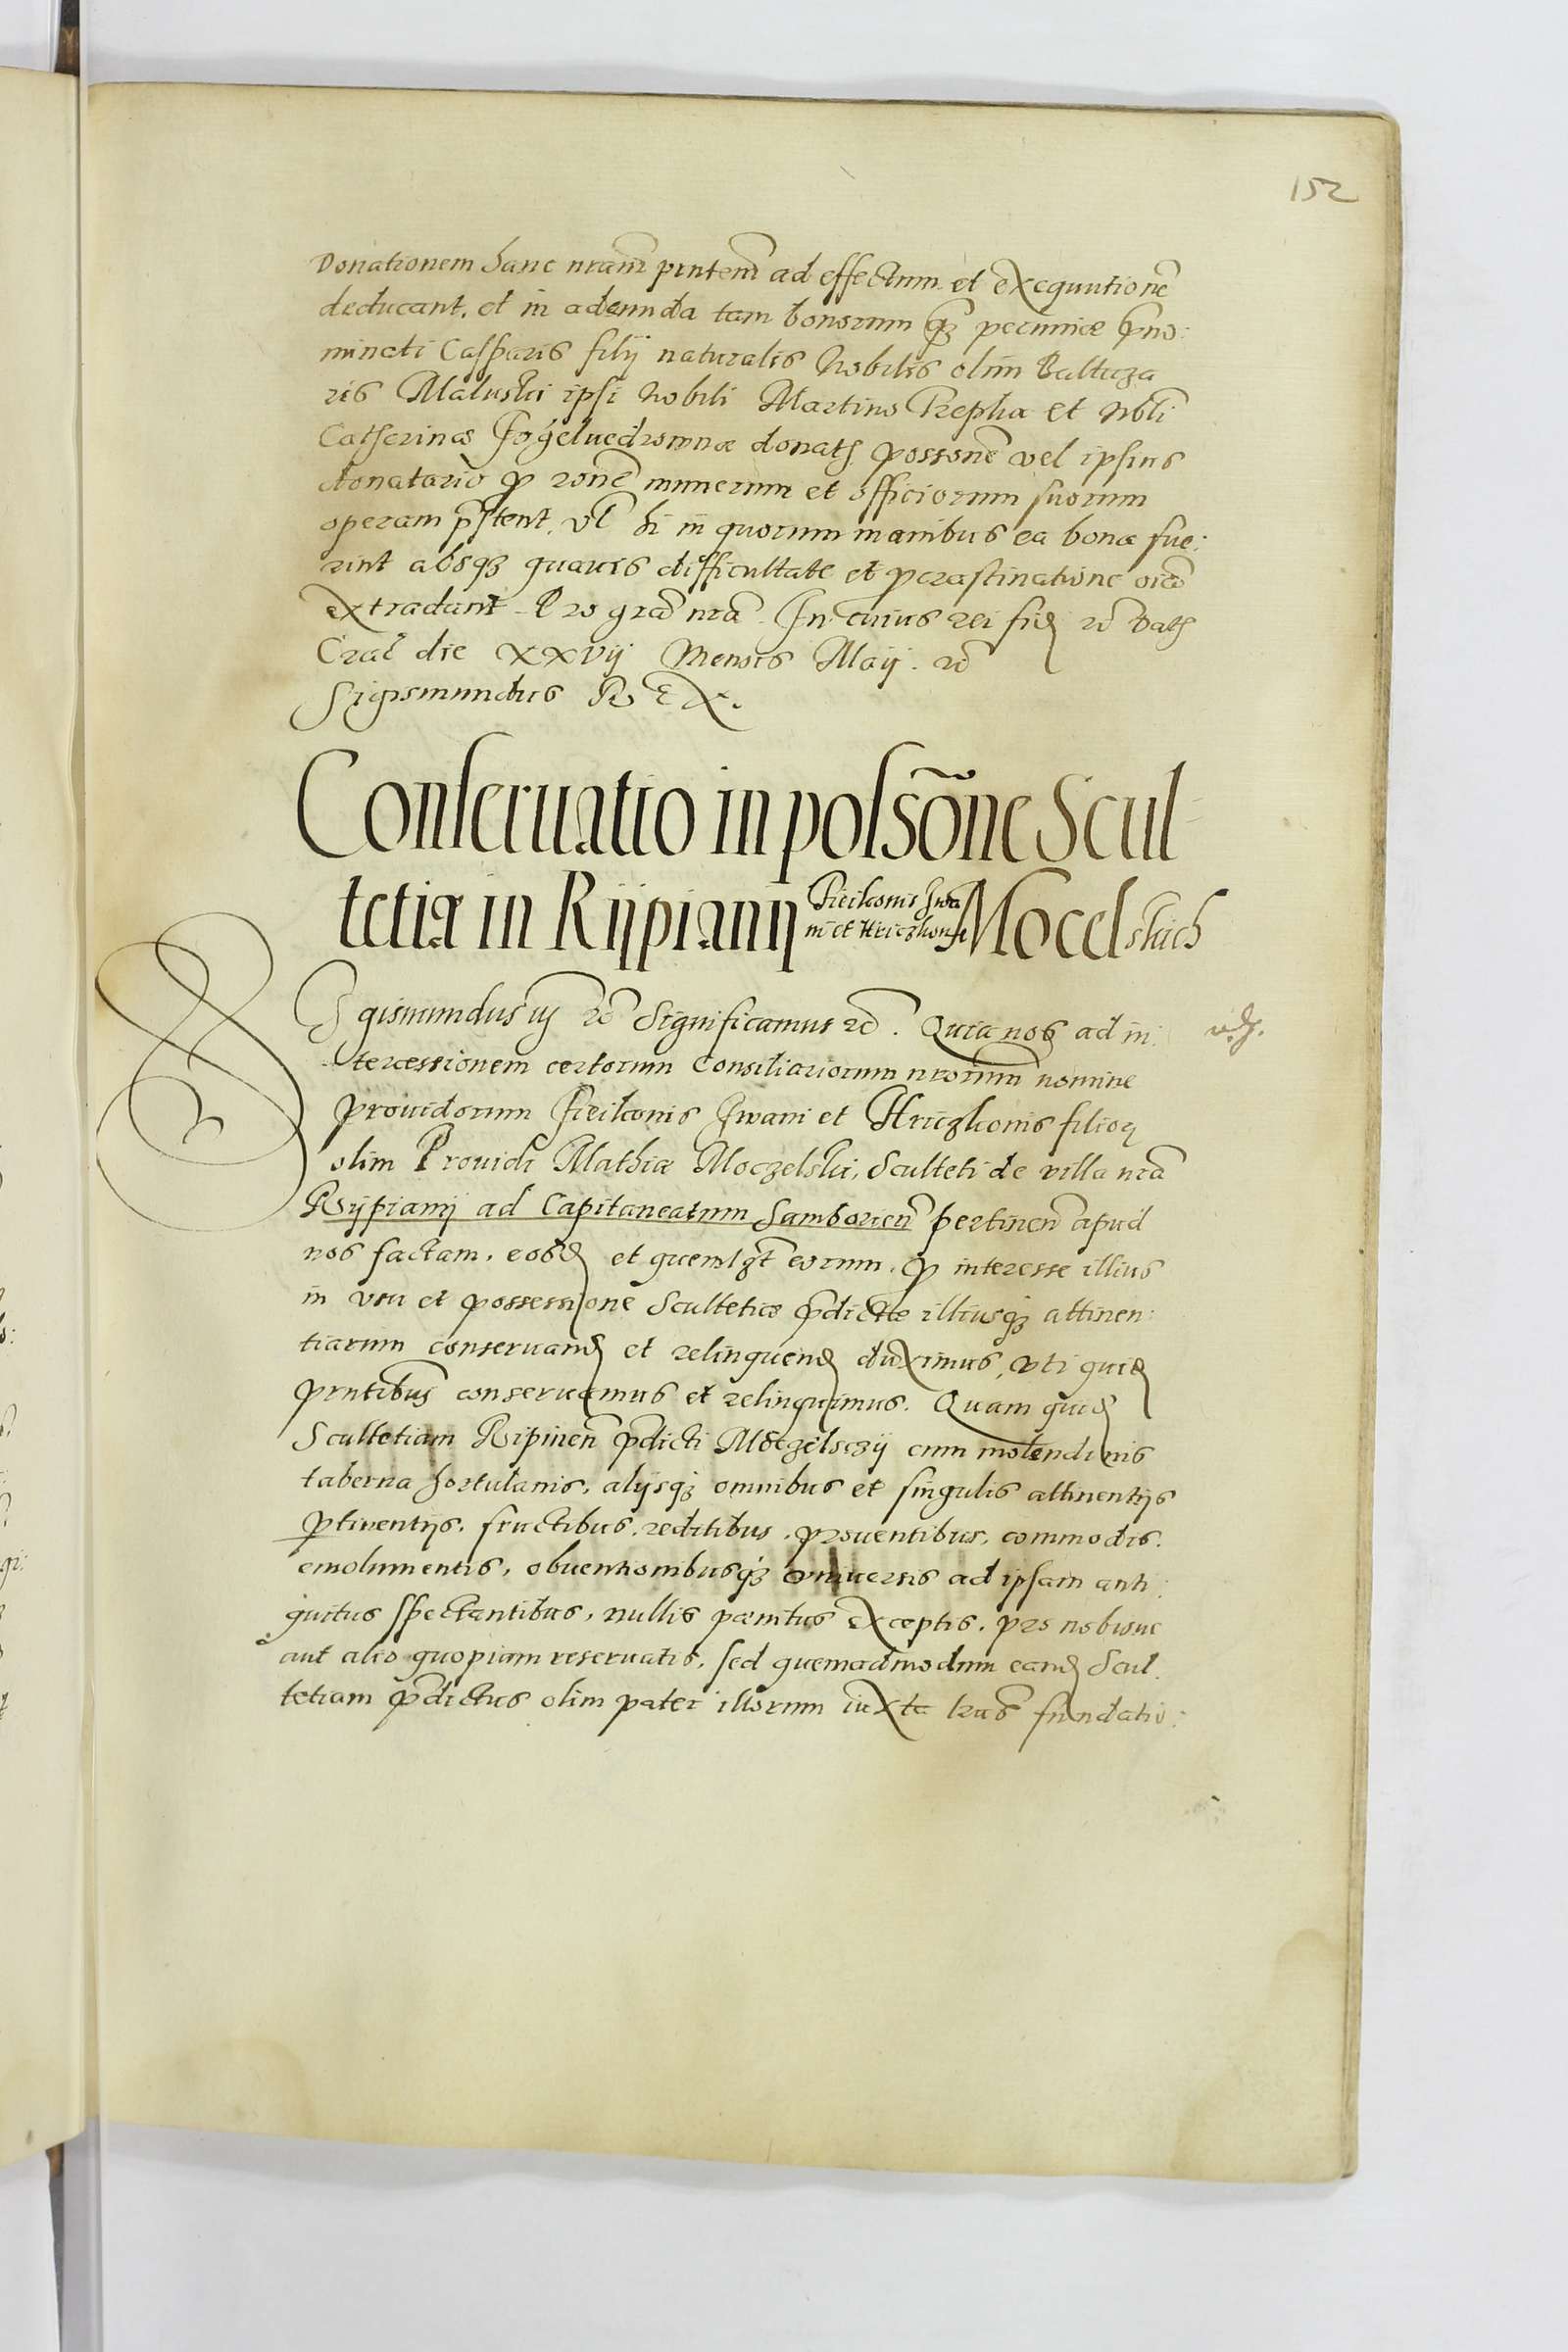 152
Donationem hanc nram̃ pñtem̃ ad effectum et exequutionẽ
deducant, et in adeunda tam bonorum qz̃ pecuniæ p̃no:
minati Casparis filij naturalis Nobilis olim Baltaza
ris Maluski ipsi Nobili Martino Krepha et Nobli
Catherinæ donatꝭ possonẽ vel ipsius
donatario ꝓ ronẽ munerum et officiorum suorum
operam p̃stent, vt̃ hi in quorum manibus ea bona fue:
rint absqꝫ quavis difficultate et ꝓcrastinatione
extradant. Pro grã nrã. In cuius rei fidẽ rc̃ Datꝭ
Crac̃ die xxvij Mensis Maij. rc̃
Sigismundus REX.
Conseruatio in possõne Scul-
tetiæ in Rijpianij Fieilconis Iwa
ni et Hriczkonis Mocelskich
Sigismundus iij rc̃ Significamus rc̃. Quia nos ad in:
tercessionem certorum Consiliariorum nrorum̃ nomine
prouidorum Fieilconis Iwani et Hriczkonis filioꝝ
olim Prouidi Mathiæ Moczelski, Sculteti de villa nrã
Rijpianij ad Capitaneatum Samborien̄ pertinen̄ apud
nos factam, eosdẽ et quemlzt̃ eorum, ꝓ interesse illius
in vsu et possessione Scultetiæ p̃dictæ illiusqꝫ attinen:
tiarum conseruandꝭ et relinquendꝭ duximus, vti quidẽ
pr̃ntibus conseruamus et relinquimus. Quam quidẽ
Scultetiam Ripinen̄ p̃dicti Moczelsczij cum molendinis
taberna hortulanis, alijsqꝫ omnibus et singulis attinentijs
ꝑtinentijs, fructibus, reditibus, prouentibus, commodis,
emolumentis, obuentionibusqꝫ vniuersis ad ipsam anti:
quitus spectantibus, nullis pænitus exceptis, pro nobisue
aut alio quopiam reseruatis, sed quemadmodum eandẽ Scul
tetiam p̃dictus olim pater illorum iuxta lras̃ fundatio: